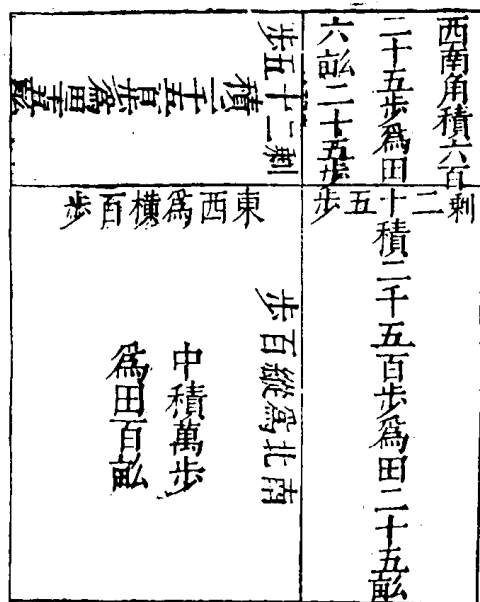 西南角積六百
二十五步爲田
六畝二十五步
剩二十五步
積二千五百步爲田二十五畝
剩二十五步
積二千五百步爲田二十五畝
東西爲橫百步
南北爲縱百步
中積萬步
爲田百畝